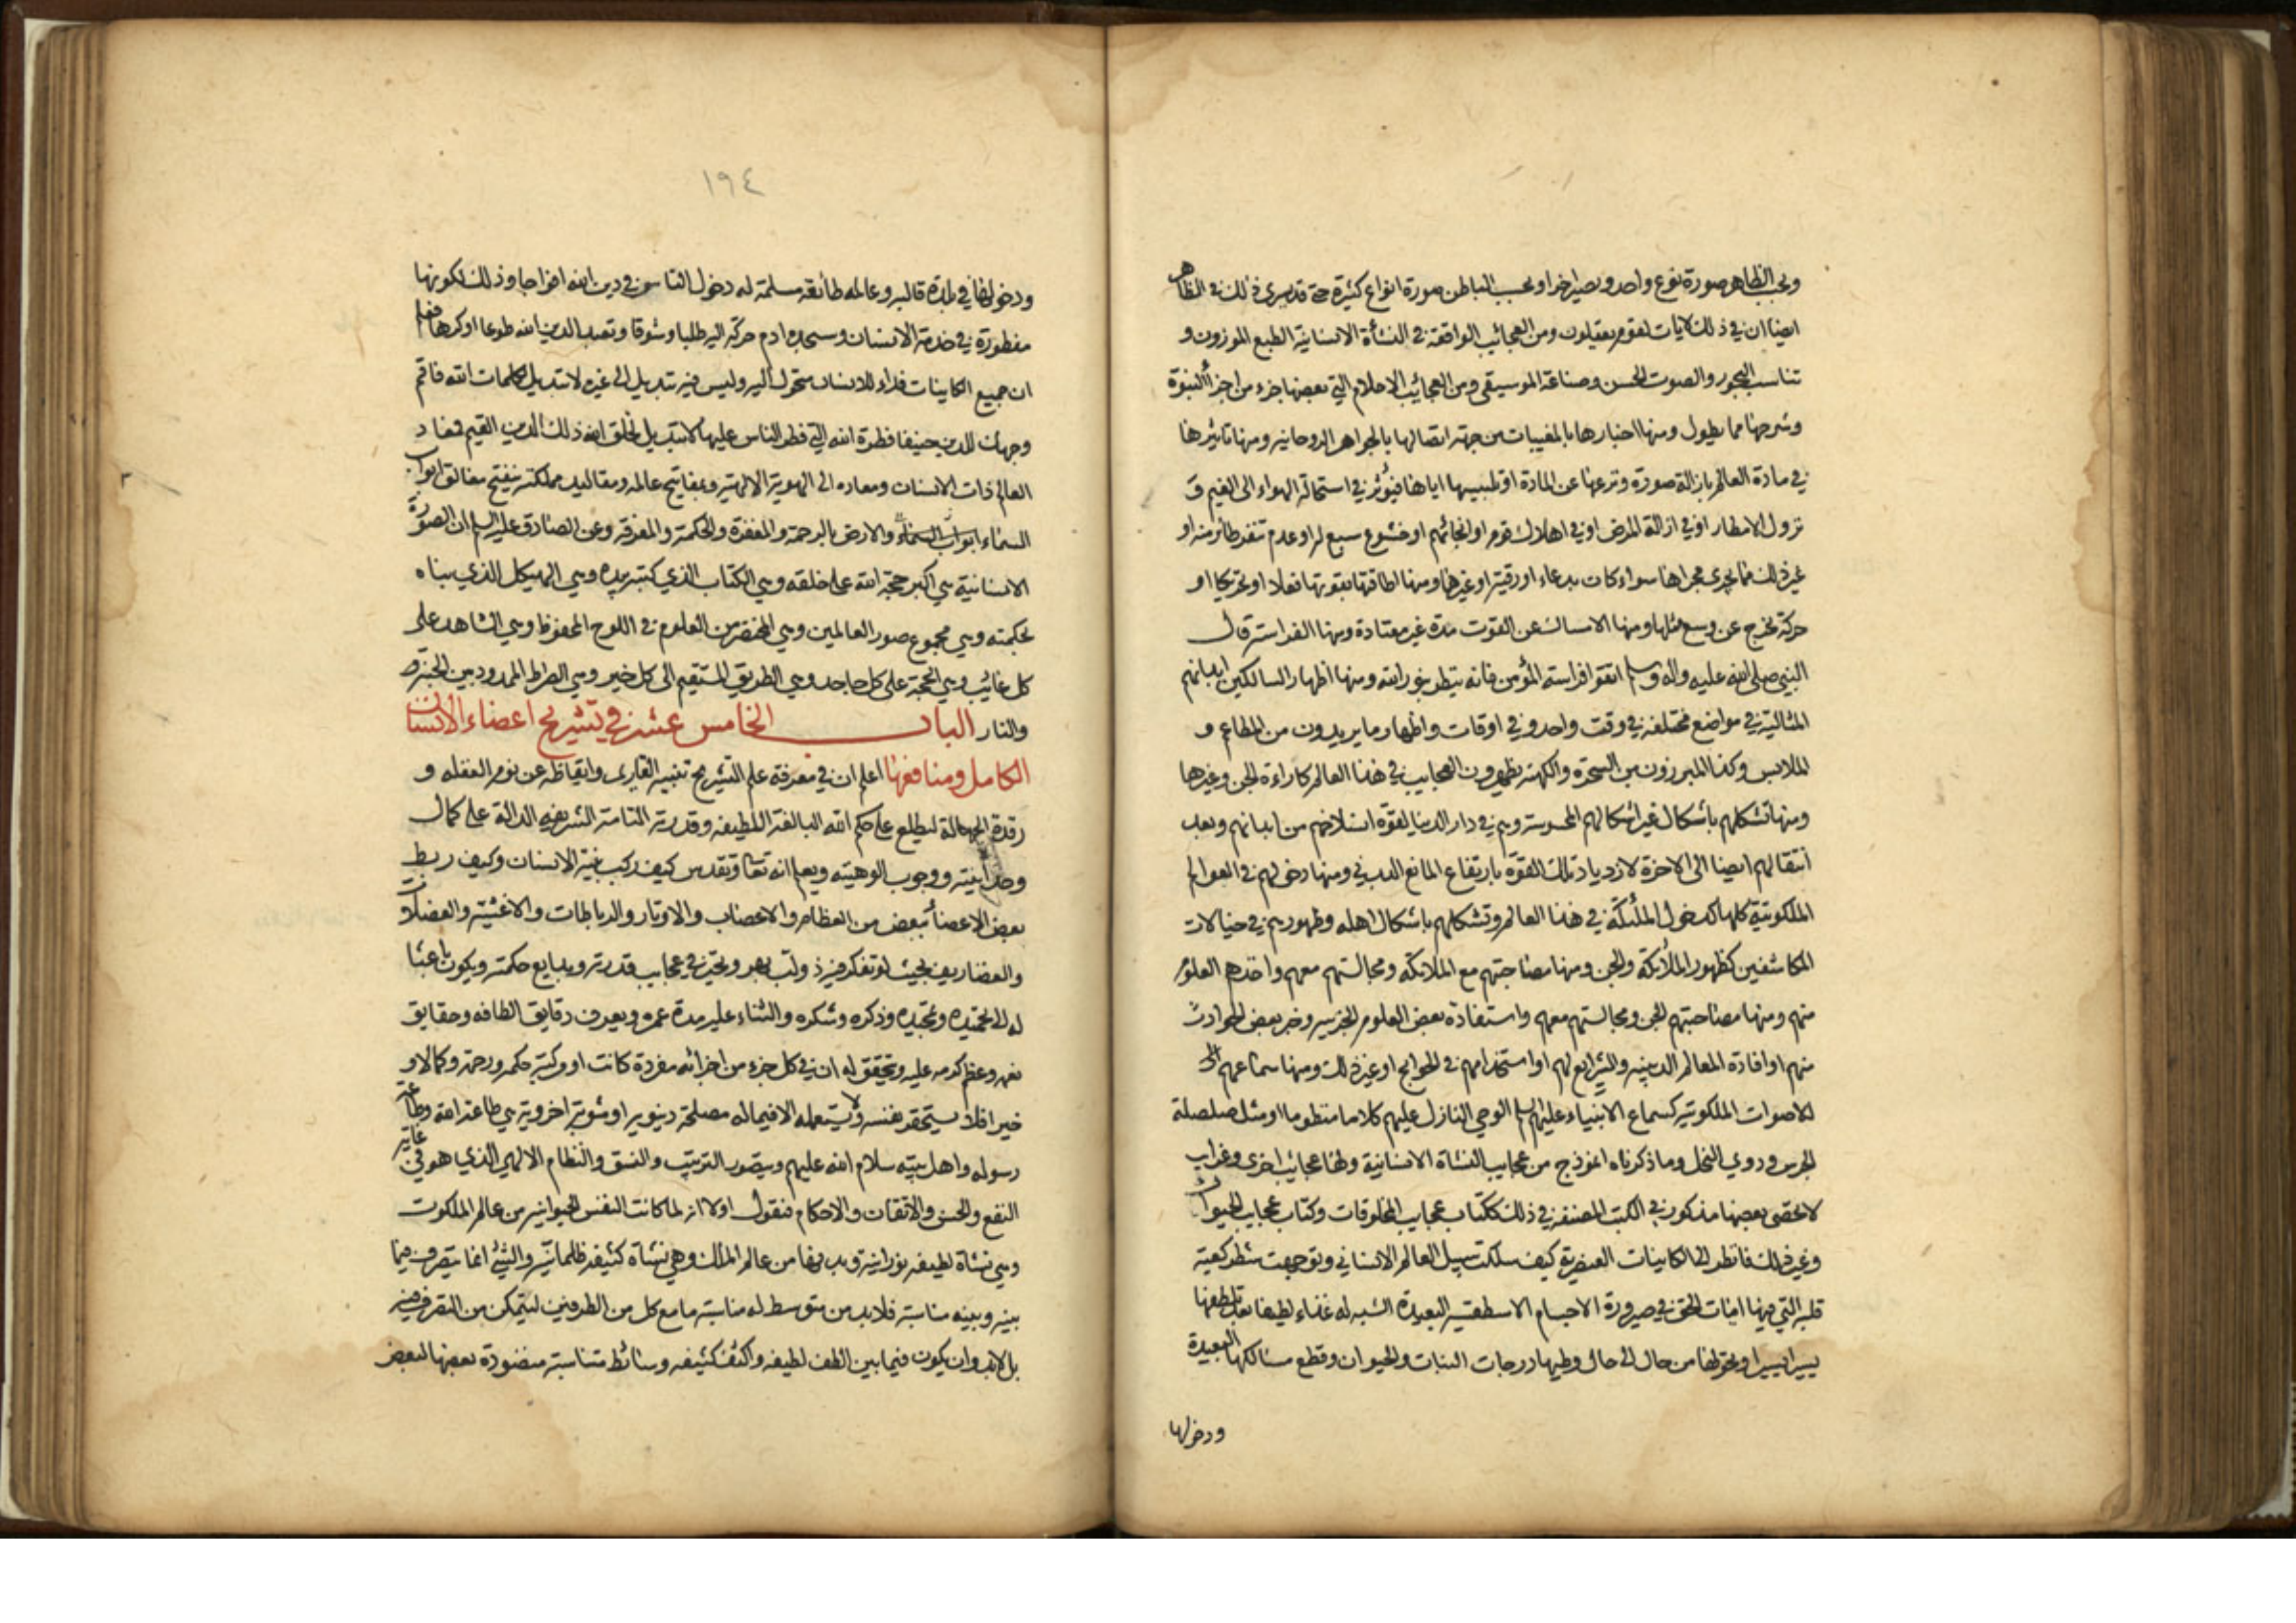 وبحسب الظاهر صورة نوع واحد ويصير اخرا وبحسب الباطن صورة انواع كثيرة حتى قد يسرى ذلك في الظاهر
ايضا ان في ذلك لايات لقوم يعقلون ومن العجائب الواقعة في النشأة الانسانية الطبع الموزون و
تناسب البحور والصوت الحسن وصناعة الموسيقى ومن العجائب الاحلام التي بعضها جزء من اجزاء النبوة
وشرحها مما يطول ومنها اخبارها بالمغيبات من جهة اتصالها بالجواهر الروحانيه ومنها تاثيرها
في مادة العالم بازالة صورة ونزعها عن المادة او تلبيسها اياها فيؤثر في استحالة الهواء الى الغيم و
نزول الامطار او في ازالة المرض او في اهلاك قوم او انجائهم او خشوع سبع له او عدم تنفر طائر منه او
غير ذلك مما يجرى مجراها سواء كان بدعاء او رقية او غيرهما ومنها اطاقتها بقوتها فعلا او تحريكا او
حركة تخرج عن وسع مثلها ومنها الامساك عن القوت مدة غير معتادة ومنها الفراسة قال
النبي صلى الله عليه واله وسلم اتقوا فراسة المؤمن فانه ينظر بنور الله ومنها اظهار السالكين ابدانهم
المثالية في مواضع مختلفه في وقت واحد وفي اوقات واظهار ما يريدون من المطاعم و
الملابس وكذا المبرزون من السحرة والكهنة يظهرون العجايب في هذا العالم كاراءة الجن وغيرها
ومنها تشكلهم باشكال غير اشكالهم المحسوسة وهم في دار الدنيا لقوة انسلاخهم من ابدانهم وبعد
انتقالهم ايضا الى الاخرة لازدياد تلك القوة بارتفاع المانع البدني ومنها دخولهم في العوالم
الملكوتية كلها كدخول الملئكة في هذا العالم وتشكلهم باشكال اهله وظهورهم في خيالات
المكاشفين كظهور الملائكة والجن ومنها مصاحبتهم مع الملائكة ومجالستهم معهم واخذهم العلوم
منهم ومنها مصاحبتهم الجن ومجالستهم معهم واستفادة بعض العلوم الجزئيه وخبر بعض الحوادث
منهم او افادة المعالم الدينيه والشرايع لهم او استخدامهم في الحوايج او غير ذلك ومنها سماعهم
للاصوات الملكوتيه كسماع الانبياء عليهم السلام الوحي النازل عليهم كلاما منظوما او مثل صلصلة
الجرس ودوي النحل وما ذكرناه انموذج من عجايب النشأة الانسانية ولها عجائب اخرى وغرايب
لا تحصى بعضها مذكور في الكتب المصنفه في ذلك ككتاب عجايب المخلوقات وكتاب عجايب الحيوان
وغير ذلك فانظر الى الكاينات العنصرية كيف سلكت سبيل العالم الانساني وتوجهت شطر كعبة
قلبه التي فيها ايات الحق في صيرورة الاجسام الاسطقسيه البعيدة الشبه له غذاء لطيفا بعد تلطفها
يسيرا يسيرا وتحولها من حال الى حال وطيها درجات النبات والحيوان وقطع مسالكها البعيدة
ودخولها
١٩٤
ودخولها في بلدة قالبه وعالمه طائعة مسلمة له دخول الناس في دين الله افواجا وذلك لكونها
مفطورة في خدمة الانسان وسجدة ادم حركة اليه طلبا وشوقا وتعبدا لدين الله طوعا او كرها فعلم
ان جميع الكاينات فداء للانسان متحول اليه وليس فيه تبديل الى غيره لا تبديل لكلمات الله فاقم
وجهك للدين حنيفا فطرة الله التي فطر الناس عليها لا تبديل لخلق الله ذلك الدين القيم فمعاد
العالم ذات الانسان ومعاده الى الهوية الالهية وبمفاتيح عالمه ومقاليد مملكته ينفتح مغالق ابواب
السماء ابواب السماء والارض بالرحمة والمغفرة والحكمة والمعرفة وعن الصادق عليه السلام ان الصورة
الانسانية هي اكبر حجة الله على خلقه وهي الكتاب الذي كتبه بيده وهي الهيكل الذي بناه
بحكمته وهي مجموع صور العالمين وهي المختصر من العلوم في اللوح المحفوظ وهي الشاهد على
كل غائب وهي الحجة على كل جاحد وهي الطريق المستقيم الى كل خير وهي الصراط الممدود بين الجنة
والنار الباب الخامس عشر في تشريح اعضاء الانسان
الكامل ومنافعها اعلم ان في معرفة علم التشريح تنبيه القارى وايقاظه عن نوم الغفله و
رقدة الجهالة ليطلع على حكم الله البالغة اللطيفه وقدرته التامة الشريفه الدالة على كمال
وحدانيته ووجوب الوهيته ويعلم انه تعالى وتقدس كيف ركب بنية الانسان وكيف ربط
بعض الاعضاء ببعض من العظام والاعصاب والاوتار والرباطات والاغشية والعضلات
والغضاريف بحيث لو تفكر فيه ذو لب بهر وتحير في عجايب قدرته وبدايع حكمته ويكون باعثا
له الى تحميده وتمجيده وذكره وشكره والثناء عليه مدة عمره ويعرف دقايق الطافه وحقايق
نعمه وعظم كرمه عليه وتحقق له ان في كل جزء من اجزائه مفردة كانت او مركبة حكم ورحمة وكمالا و
خيرا فلا يستحقر نفسه ولا يستعمله الا فيما له مصلحة دنيويه او مثوبة اخروية هي طاعة الله وطاعة
رسوله واهل بيته سلام الله عليهم ويتصور الترتيب والنسق والنظام الالهي الذي هو في غاية
النفع والحسن والاتقان والاحكام فنقول اولا انه لما كانت النفس الحيوانيه من عالم الملكوت
وهي نشأة لطيفه نورانية وبدنها من عالم الملك وهي نشأة كثيفه ظلمانية والشئ انما يتصرف فيما
بينه وبينه مناسبة فلابد من متوسط له مناسبة ما مع كل من الطرفين ليتمكن من التصرف فيه
بل لابد وان يكون فيما بين الطف لطيفه واكثف كثيفه وسائط متناسبة منضودة بعضها لبعض